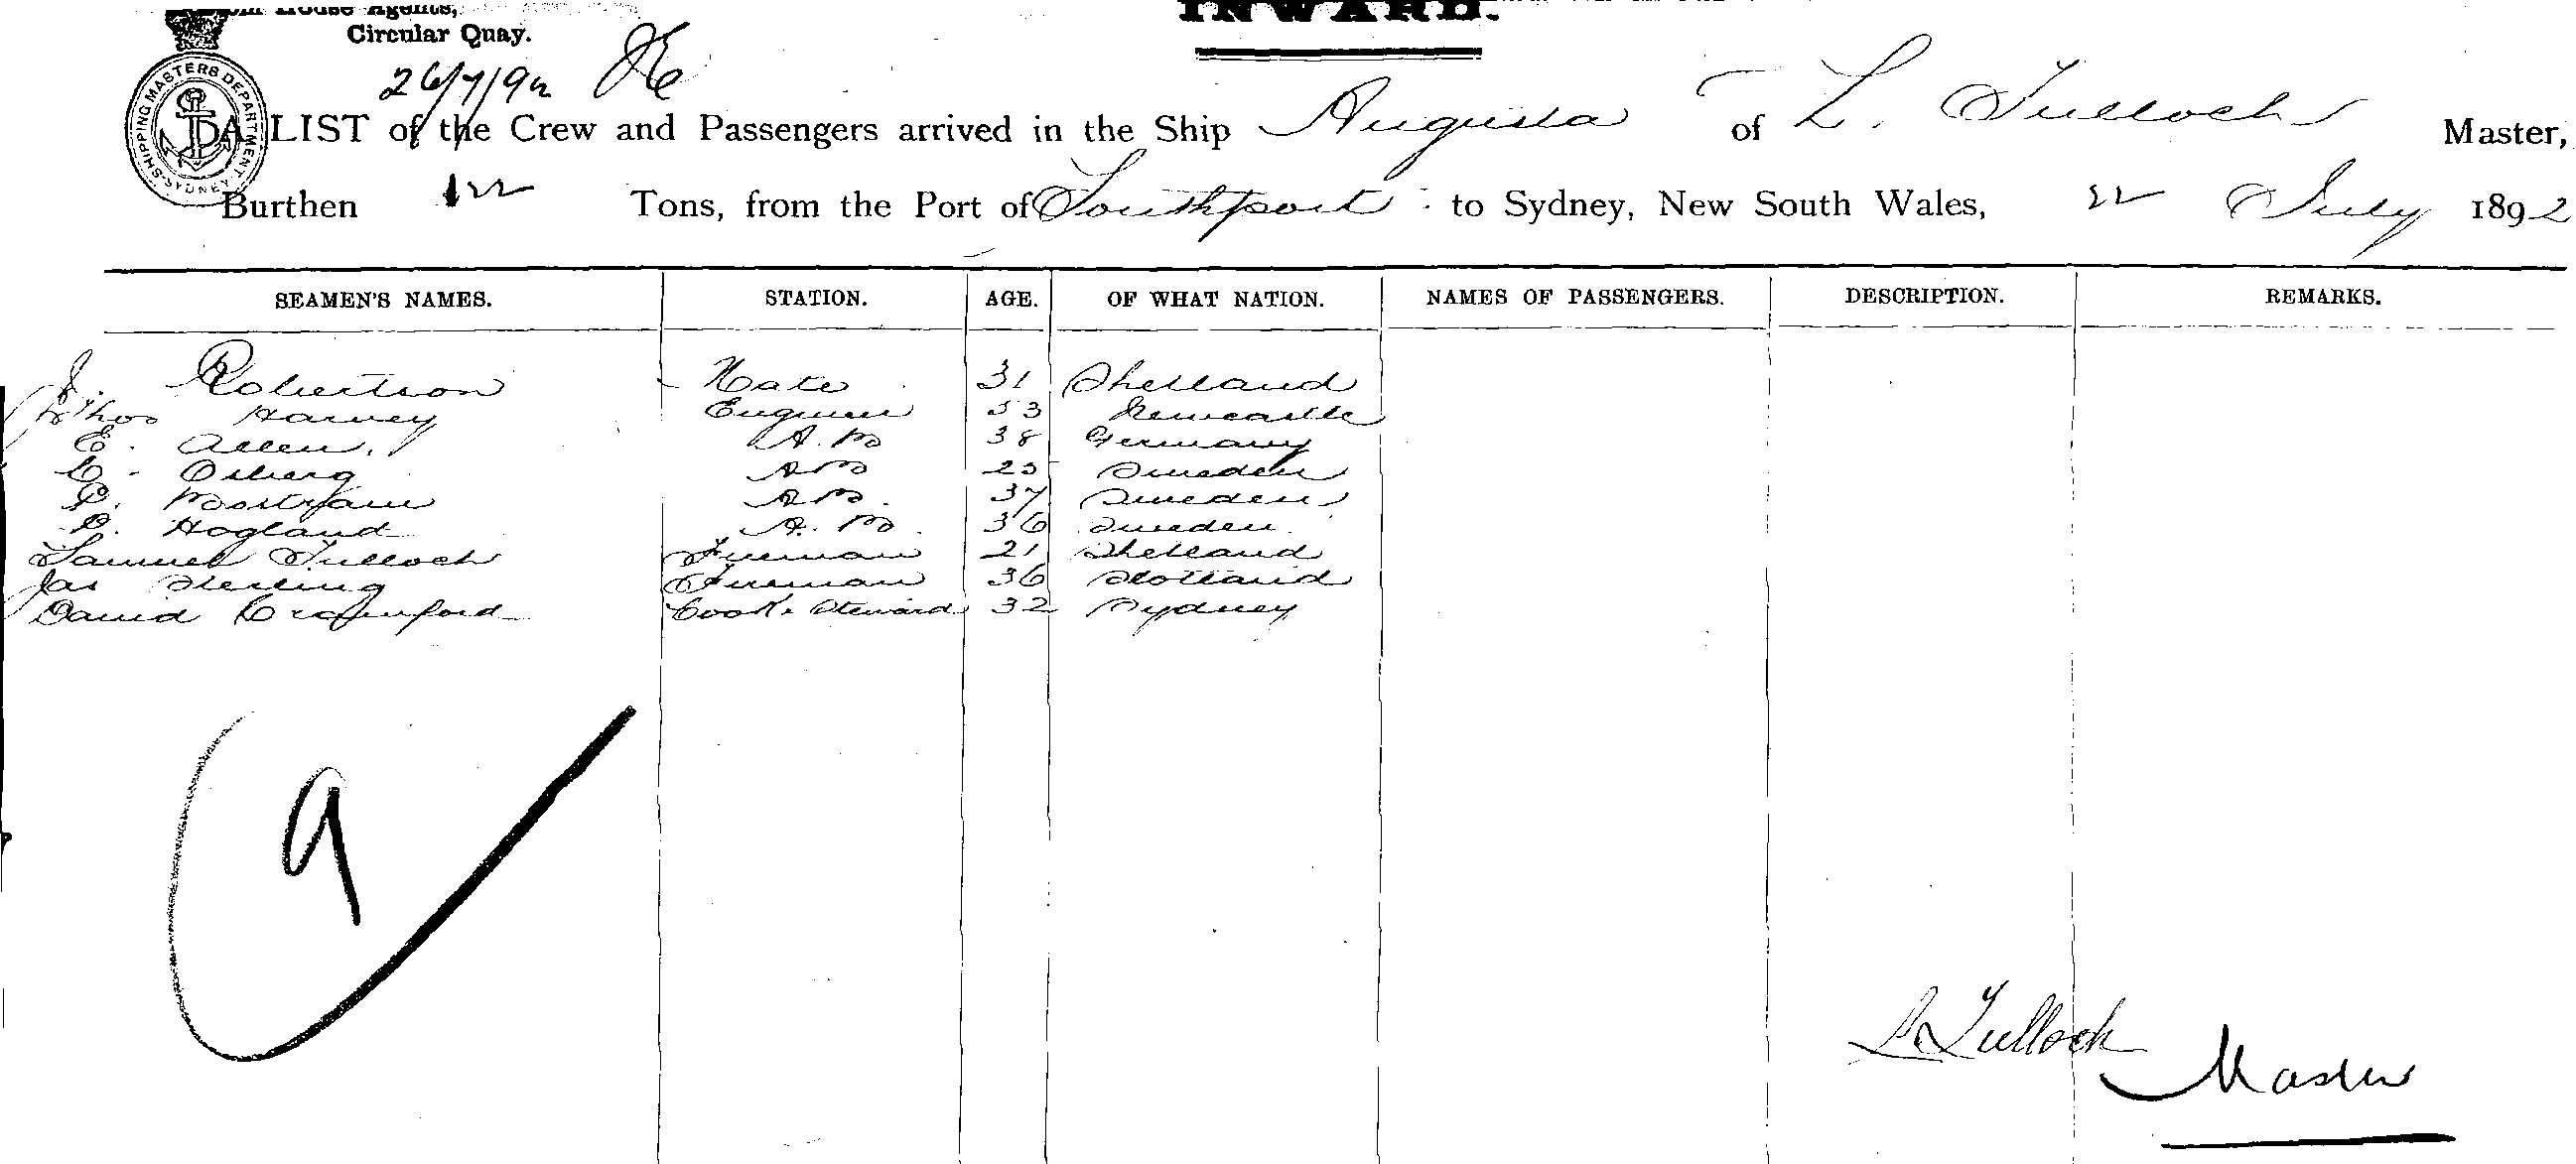 House Agents,
Circular Quay.
INWARD.
26/7/92
SHIPPING MASTERS DEPARTMENT SYDNEY
A LIST of the Crew and Passengers arrived in the Ship Augusta of L. Tulloch Master,
Burthen 122 Tons, from the Port of Southport to Sydney, New South Wales, 22 July 1892
SEAMEN'S NAMES. STATION. AGE. OF WHAT NATION. NAMES OF PASSENGERS. DESCRIPTION. REMARKS.
J. Robertson Mate 31 Shetland
Thos Harvey Engineer 53 Newcastle
E. Allen. A.B 38 Germany
C. Osberg AB 25 Sweden
P. AB. 37 Sweden
P. Hogland A.B 36 Sweden
Samuel Tulloch Fireman 21 Shetland
Jas Sterling Fireman 36 Scotland
David Crawford Cook & Steward 32 Sydney
9
L Tulloch
Master